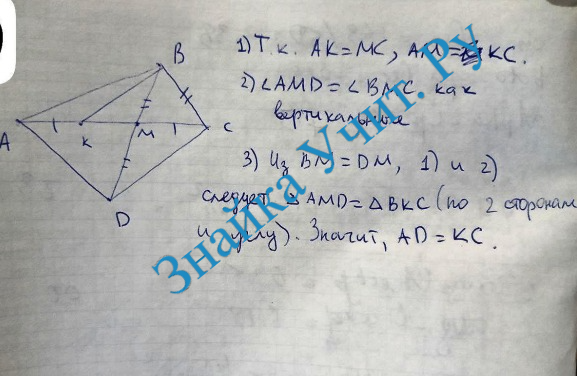 B
A
K
M
C
D
1) Т.к. AK=MC, AM= KC.
2) ∠AMD=∠BMC как
вертикальные
3) Из BM=DM, 1) и 2)
следует △AMD=△BKC (по 2 сторонам
и углу). Значит, AD=KC.
Знайка Учит. Ру